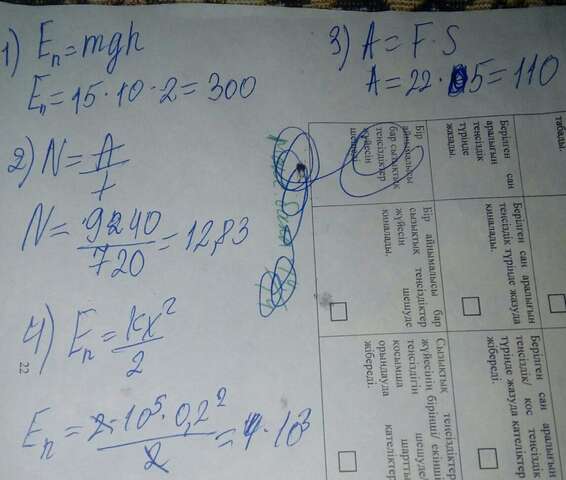 1) Eп = mgh
Eп = 15 · 10 · 2 = 300
2) N = A/t
N = 9240/720 = 12,83
3) A = F · S
A = 22 · 5 = 110
4) Eп = kx²/2
Eп = 2·10⁵·0,2²/2 = 4·10³
22
табады.
Берілген сан
аралығын
теңсіздік
түрінде
жазады.
Бір
айнымалысы
бар сызықтық
теңсіздіктер
жүйесін
шешеді.
Берілген сан аралығын
теңсіздік түрінде жазуда
қиналады.
Бір айнымалысы бар
сызықтық теңсіздіктер
жүйесін шешуде
қиналады.
Берілген сан аралығын
теңсіздік/ қос теңсіздік
түрінде жазуда қателіктер
жібереді.
Сызықтық теңсіздіктер
жүйесінің бірінші/ екінші
теңсіздігін шешуде/
қосымша шартты
орындауда қателіктер
жібереді.